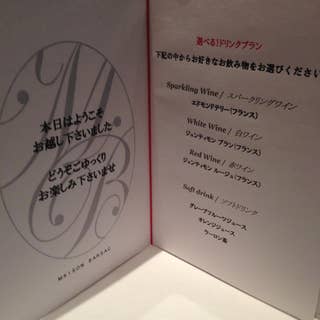 本日はようこそ
お越し下さいました
どうぞごゆっくり
お楽しみ下さいませ
MAISON BARSAC
選べる!ドリンクプラン
下記の中からお好きなお飲み物をお選びください
Sparkling Wine / スパークリングワイン
エドモンドテリー(フランス)
White Wine / 白ワイン
ジャンティモン ブラン(フランス)
Red Wine / 赤ワイン
ジャンティモン ルージュ(フランス)
Soft drink / ソフトドリンク
グレープフルーツジュース
オレンジジュース
ウーロン茶